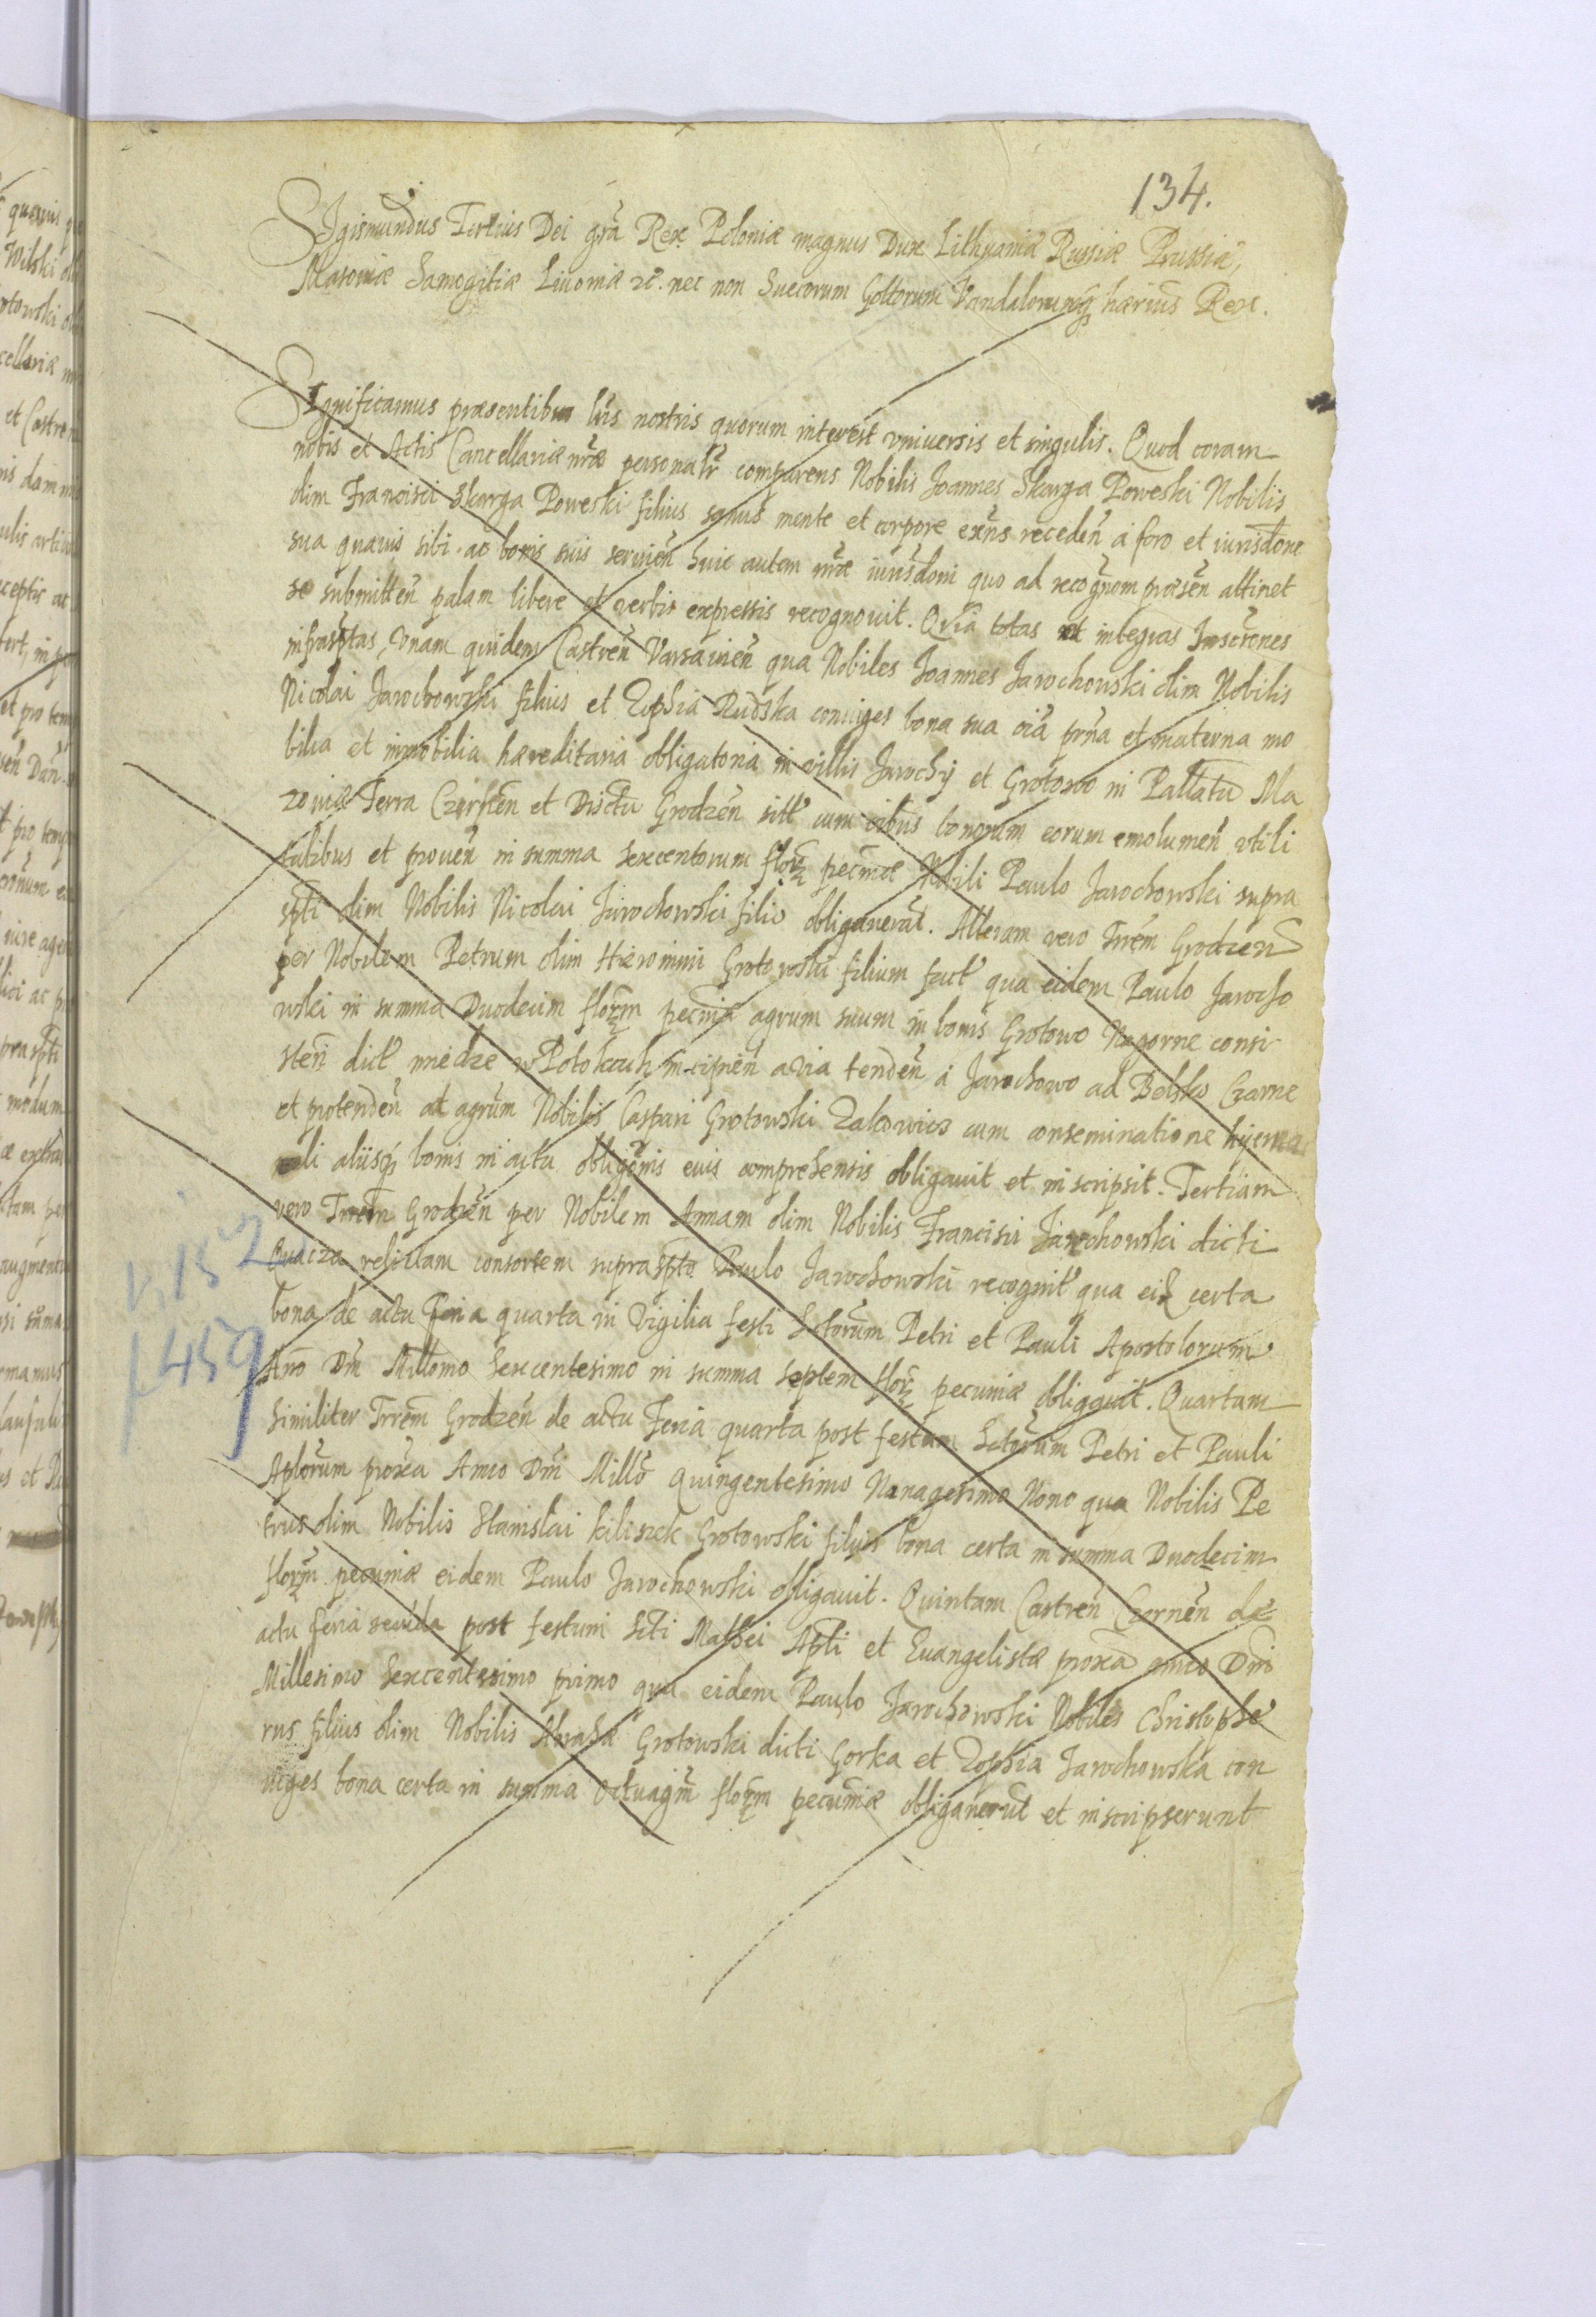 134.
SIgismundus Tertius Dei grã Rex Poloniæ magnus Dux Lithuaniæ Russiæ Prussiæ,
Masoviæ Samogitiæ Livoniæ ꝛc̃. nec non Suecorum Gottorum Vandalorumq̃ hærius Rex.
SIgnificamus præsentibus lr̃is nostris quorum interest vniuersis et singulis. Quod coram
nobis et Actis Cancellariæ nr̃æ personalr̃ comparens Nobilis Joannes Skarga Poweski Nobilis
olim Francisci Skarga Poweski filius sanus mente et corpore exñs receden̄ a foro et iurisdone
sua quauis sibi ac bonis suis seruien̄ huic autem nr̃æ iurisdoni quo ad recognom præsen̄ attinet
se submitten̄ palam libere et verbis expressis recognouit. Quia totas et integras Inscrones
infrasptas, Vnam quidem Castren̄ Varsauien̄ qua Nobiles Joannes Jarochowski olim Nobilis
Nicolai Jarochowski filius et Zophia Rudska coniuges bona sua oĩa prña et materna mo
bilia et immobilia hæreditaria obligatoria in villis Jarochy et Grotowo in Pallatu Ma
zouiæ Terra Czersten̄ et Disctu Grodzen̄ sitt cum oĩbus bonorum eorum emolumen̄ vtili
tatibus et prouen̄ in summa sexcentorum flor̃ pecniæ Nobili Paulo Jarochowski supra
spti olim Nobilis Nicolai Jarochowski filio obligauerat. Alteram vero Trrem Grodzen̄
per Nobilem Petrum olim Hieronimi Grotowski filium fact qua eidem Paulo Jarocho
wski in summa Duodecim flor̃m pecniæ agrum suum in bonis Grotowo Nagorne consi
sten̄ dict miedze w Potokach incipien̄ a via tenden̄ a Jarochowo ad Belsko Czarne
et protenden̄ ad agrum Nobilis Caspari Grotowski Zalcowicz cum conseminatione hyema
li aliisq̃ bonis in actu obligõnis euis comprehensis obligauit et inscripsit. Tertiam
vero Trrem Grodzen̄ per Nobilem Annam olim Nobilis Francisci Jarochowski dicti
relictam consortem suprascpto Paulo Jarochowski recognit qua ei certa
bona de actu Feria quarta in Vigilia festi Sctorum Petri et Pauli Apostolorum
Ano Dni Millmo Sexcentesimo in summa septem flor̃ pecuniæ obligauit. Quartam
similiter Trrem Grodzen̄ de actu Feria quarta post festum Sctorum Petri et Pauli
Aplorum proxa Anno Dni Millo quingentesimo Nonagesimo Nono qua Nobilis Pe
trus olim Nobilis Stanislai Kiliszek Grotowski filius bona certa in summa Duodecim
flor̃m pecuniæ eidem Paulo Jarochowski obligauit. Quintam Castren̄ Czernen̄ de
actu feria secũda post festum Scti Mathei Apti et Euangelistæ proxa anno Dni
Millesimo Sexcentesimo primo qua eidem Paulo Jarochowski Nobiles Christophe
rus filius olim Nobilis Abrahæ Grotowski dicti Gorka et Zophia Jarochowska con
iuges bona certa in summa octuagm̃ flor̃m pecuniæ obligauerũt et inscripserunt
V. 152
f 459